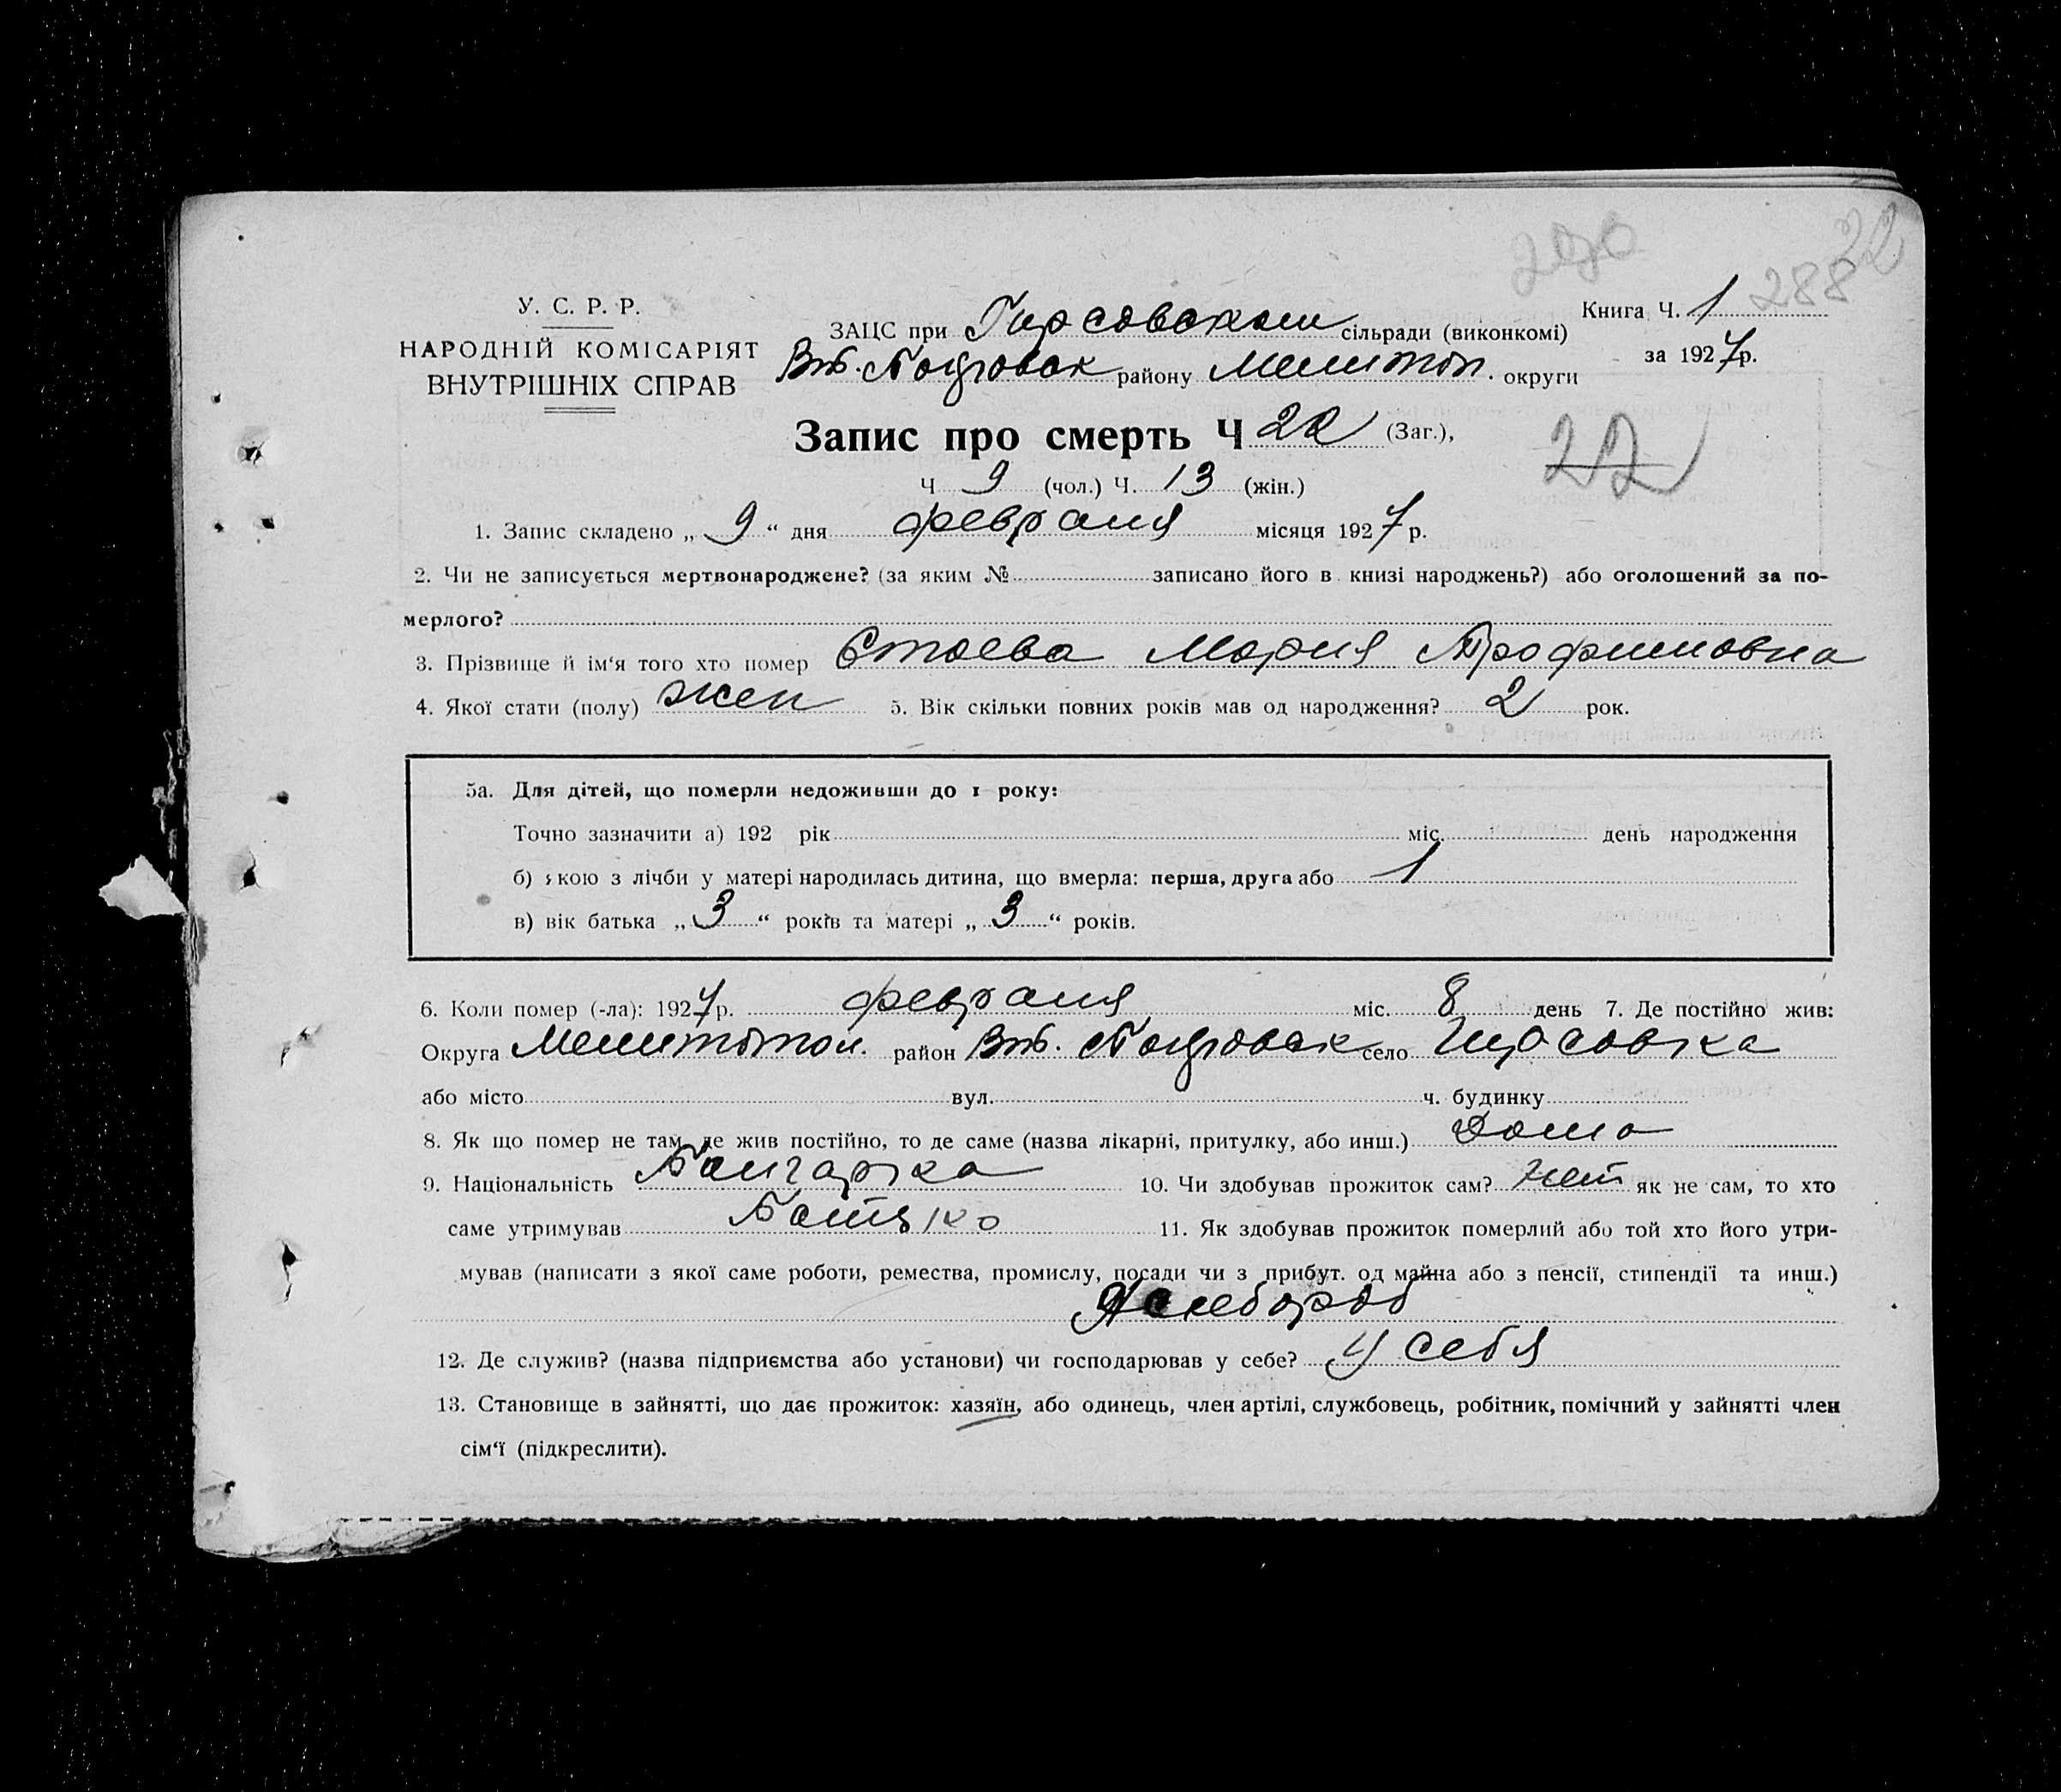 290
22
288
У. С. Р. Р.
НАРОДНІЙ КОМІСАРІЯТ
ВНУТРІШНІХ СПРАВ
ЗАЦС при Гирсовском сільради (виконкомі)
Книга Ч. 1
району Мелитоп. округи
за 1927 р.
Запис про смерть Ч 22 (Заг.),
22
Ч 9 (чол.) Ч. 13 (жін.)
1. Запис складено „ 9 “ дня февраля місяця 1927 р.
2. Чи не записується мертвонароджене? (за яким № записано його в книзі народжень?) або оголошений за по-
мерлого?
3. Прізвище й ім‘я того хто помер Стоева Мария Трофимовна
4. Якої стати (полу) жен 5. Вік скільки повних років мав од народження? 2 рок.
5а. Для дітей, що померли недоживши до 1 року:
Точно зазначити а) 192 рік міс. день народження
б) якою з лічби у матері народилась дитина, що вмерла: перша, друга або 1
в) вік батька „ 3 “ років та матері „ 3 “ років.
6. Коли помер (-ла): 1927 р. февраля міс. 8 день 7. Де постійно жив:
Округа Мелитопол. район село
або місто вул. ч. будинку
8. Як що помер не там, де жив постійно, то де саме (назва лікарні, притулку, або инш.) Дома
9. Національність Болгарка 10. Чи здобував прожиток сам? нет як не сам, то хто
саме утримував Батько 11. Як здобував прожиток померлий або той хто його утри-
мував (написати з якої саме роботи, ремества, промислу, посади чи з прибут. од майна або з пенсії, стипендії та инш.)
Хлебороб
12. Де служив? (назва підприємства або установи) чи господарював у себе? у себя
13. Становище в зайнятті, що дає прожиток: хазяїн, або одинець, член артілі, службовець, робітник, помічний у зайнятті член
сім‘ї (підкреслити).